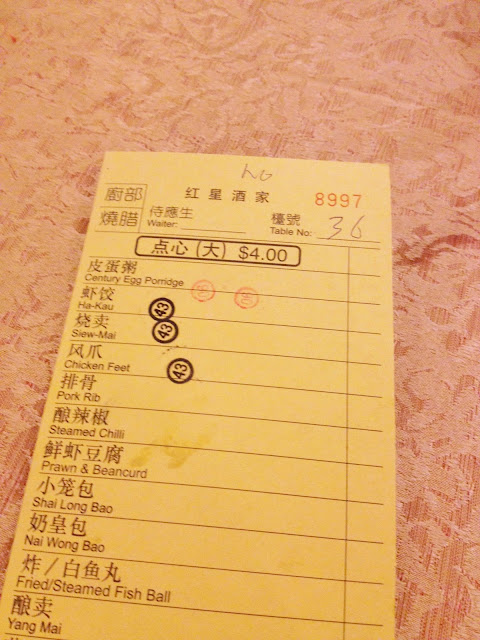 hG
廚部 红星酒家 8997
燒腊 侍應生 檯號
Waiter: Table No: 36
点心 (大) $4.00
皮蛋粥
Century Egg Porridge
虾饺
Ha-Kau 43
烧卖 43
Siew-Mai
凤爪 43
Chicken Feet
排骨
Pork Rib
酿辣椒
Steamed Chilli
鲜虾豆腐
Prawn & Beancurd
小笼包
Shai Long Bao
奶皇包
Nai Wong Bao
炸/白鱼丸
Fried/Steamed Fish Ball
酿卖
Yang Mai